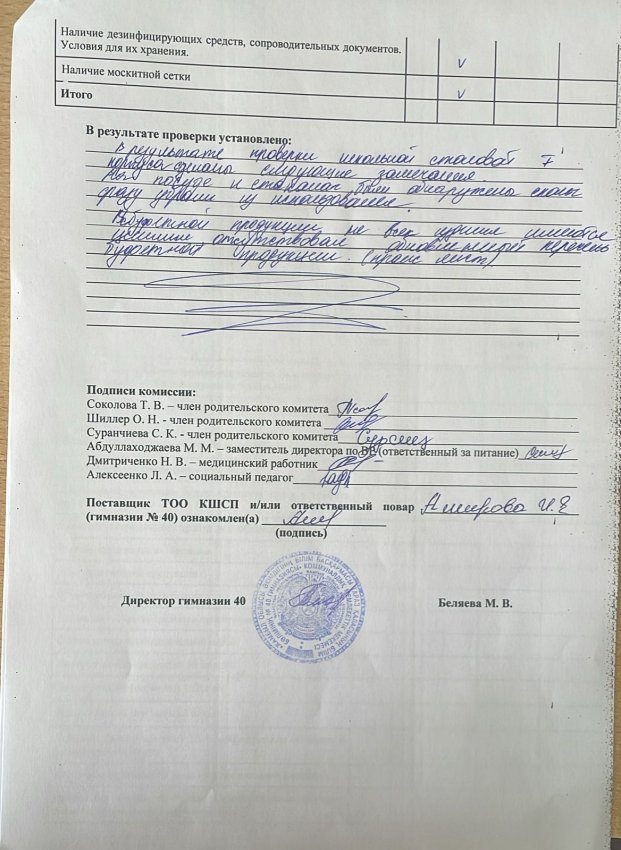 Наличие дезинфицирующих средств, сопроводительных документов.
Условия для их хранения.
V
Наличие москитной сетки
V
Итого
В результате проверки установлено:
В результате проверки школьной столовой 7
корпуса сделаны следующие замечания.
На посуде и стаканах были обнаружены сколы
сразу убрали из использования.
В буфетной продукции не все
ценники отсутствовал обновленный перечень
буфетной продукции. (прайс лист)
Подписи комиссии:
Соколова Т. В. – член родительского комитета
Шиллер О. Н. - член родительского комитета
Суранчиева С. К. - член родительского комитета
Абдуллаходжаева М. М. – заместитель директора по ВР (ответственный за питание)
Дмитриченко Н. В. – медицинский работник
Алексеенко Л. А. – социальный педагог
Поставщик ТОО КШСП и/или ответственный повар Аширова И.Е
(гимназии № 40) ознакомлен(а)
(подпись)
Директор гимназии 40 Беляева М. В.